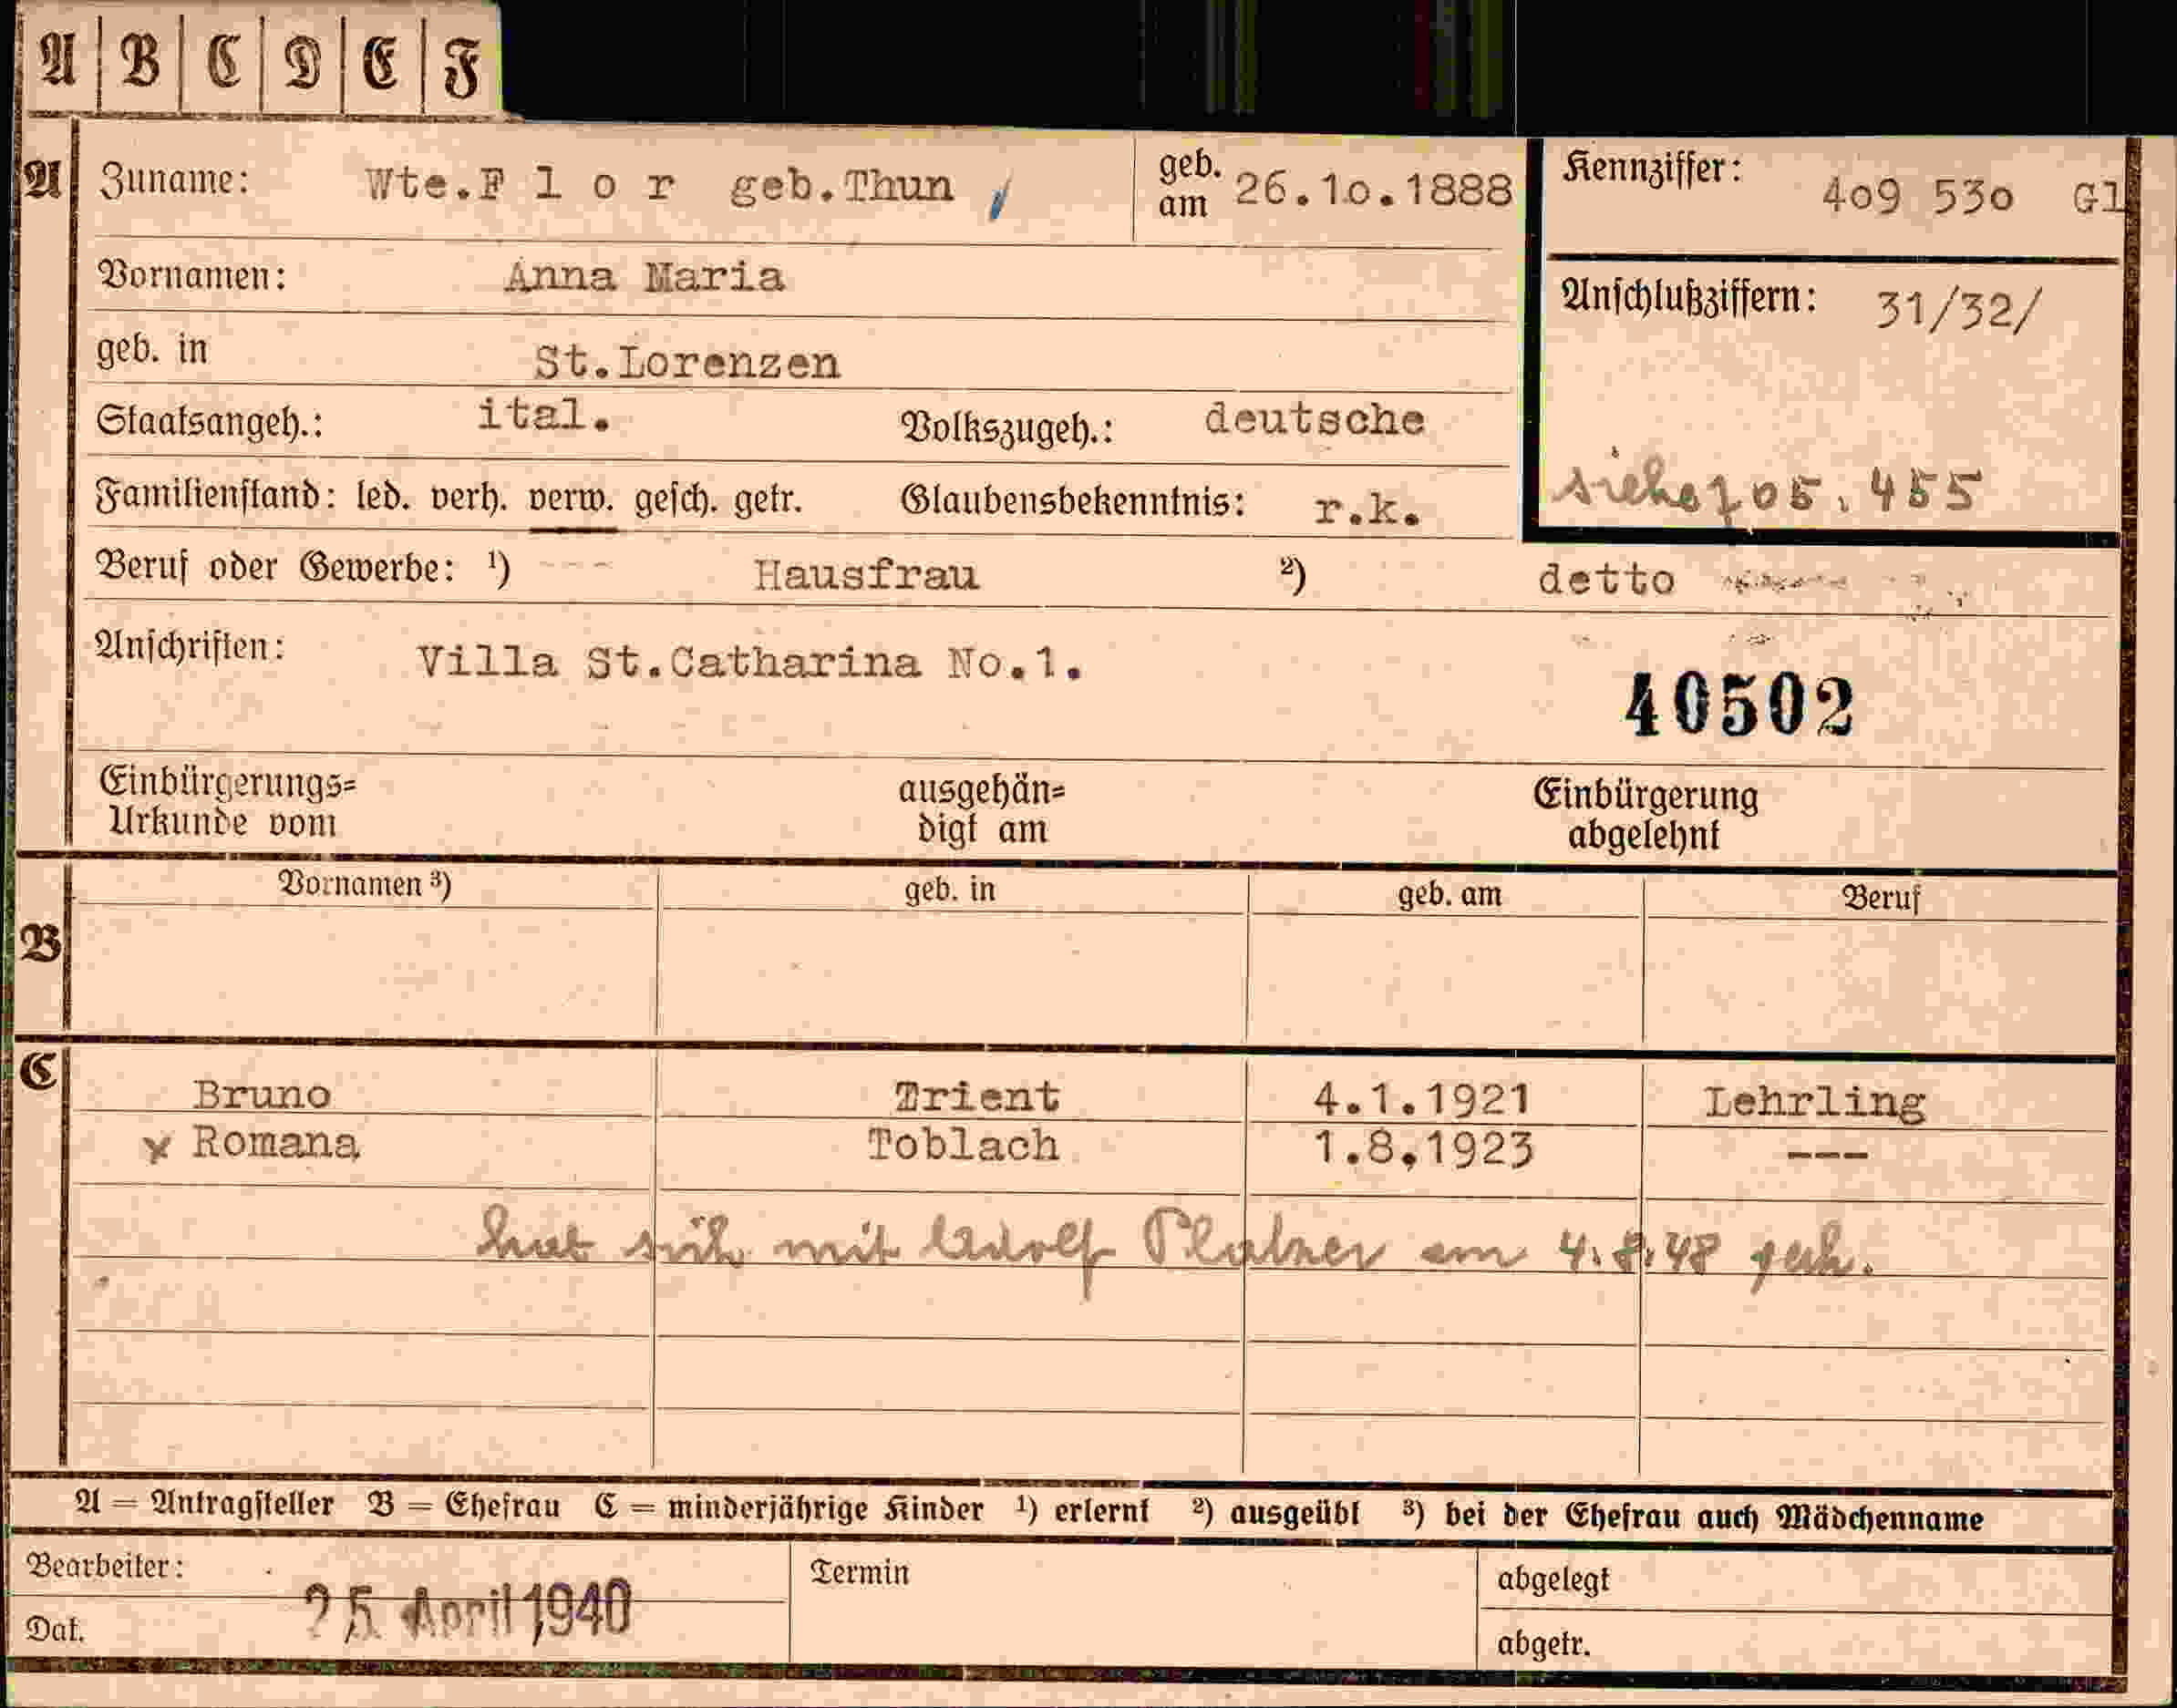 A B C D E F
A Zuname: Wte.F l o r geb.Thun geb. am 26.10.1888 Kennziffer: 409 530 Gl
Vornamen: Anna Maria Anschlußziffern: 31/32/
geb. in St.Lorenzen
Staatsangeh.: ital. Volkszugeh.: deutsche
Familienstand: led. verh. verw. gesch. getr. Glaubensbekenntnis: r.k. siehe 705.455
Beruf oder Gewerbe: ¹) --- Hausfrau ²) detto
Anschriften: Villa St.Catharina No.1.
40502
Einbürgerungs= ausgehän= Einbürgerung
Urkunde vom digt am abgelehnt
Vornamen ³) geb. in geb. am Beruf
B
C
Bruno Trient 4.1.1921 Lehrling
x Romana Toblach 1.8.1923 ---
hat sich mit Adolf Platzer am 4.8.48
A = Antragsteller B = Ehefrau C = minderjährige Kinder ¹) erlernt ²) ausgeübt ³) bei der Ehefrau auch Mädchenname
Bearbeiter: Termin abgelegt
25 April 1940
Dat. abgetr.